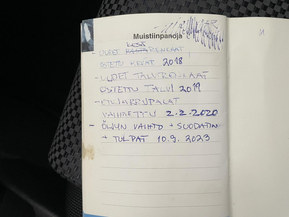 Muistiinpanoja
- UUDET KESÄRENKAAT
OSTETTU KEVÄT 2018
- UUDET TALVIRENKAAT
OSTETTU TALVI 2019
- ETUJARRUPALAT
VAIHDETTU 2-2-2020
- ÖLJYN VAIHTO + SUODATIN
+ TULPAT 10.9. 2023